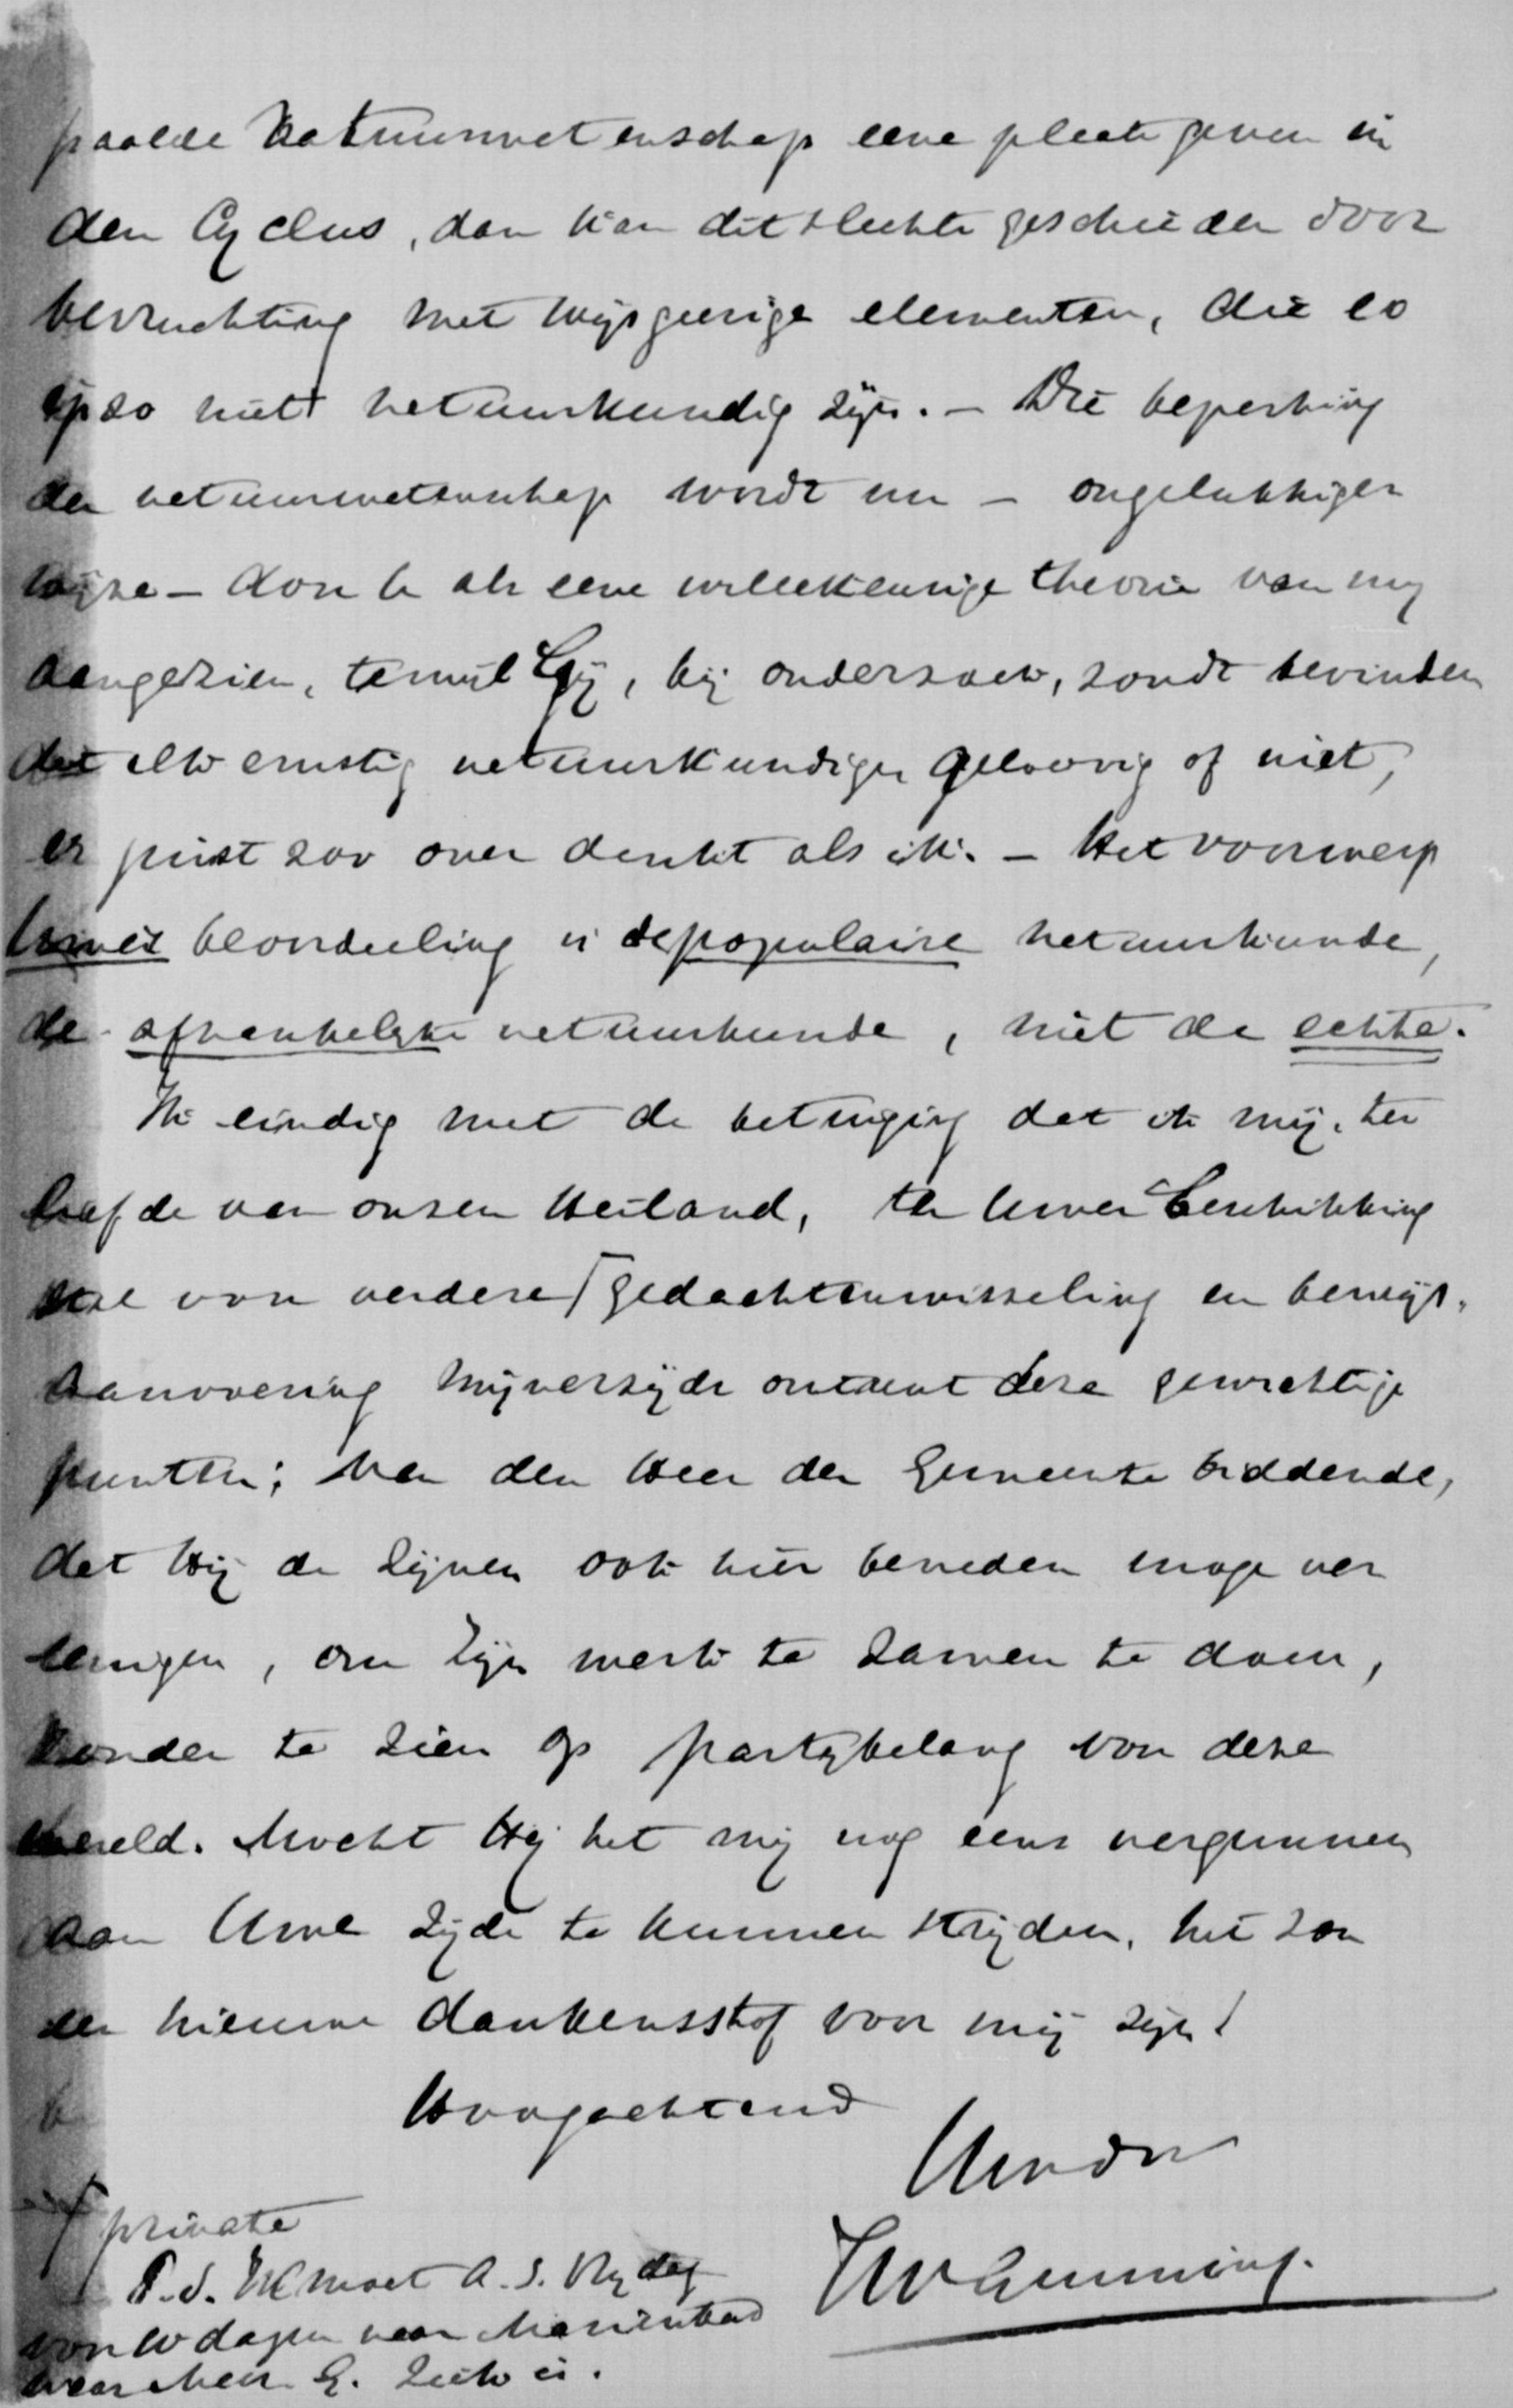 paalde natuurwetenschap eene plaats geven in
den Cyclus, dan kan dit slechts geschieden door
bevruchting met wijsgeerige elementen, die eo
ipso niet natuurkundig zijn. – Die beperking
der natuurwetenschap wordt nu – ongelukkiger
wijze – door U als eene willekeurige theorie van mij
aangezien, terwijl Gij, bij onderzoek, zoudt bevinden
dat elk ernstig natuurkundige geloovig of niet,
er juist zoo over denkt als ik. – Het voorwerp
Uwer beoordeeling is de populaire natuurkunde,
de afhankelijke natuurkunde, niet de echte.
Ik eindig met de betuiging dat ik mij, ter
liefde van onzen Heiland, ter Uwer beschikking
stel voor verdere ⌈ gedachtenwisseling en bewijs-
aanvoering mijnerzijds omtrent deze gewichtige
punten; van den Heer der Gemeente biddende,
dat Hij de Zijnen ook hier beneden moge ver
eenigen, om Zijn werk te zamen te doen,
zonder te zien op partijbelang van deze
wereld. Mocht Hij het mij nog eens vergunnen
aan Uwe zijde te kunnen strijden, het zou
een nieuwe dankensstof voor mij zijn!
Hoogachtend
Uwdr
⌈ private
P.S. Ik moet a.s. Vrydag
voor 10 dagen naar Marienbad
waar Mevr. G. ziek is.